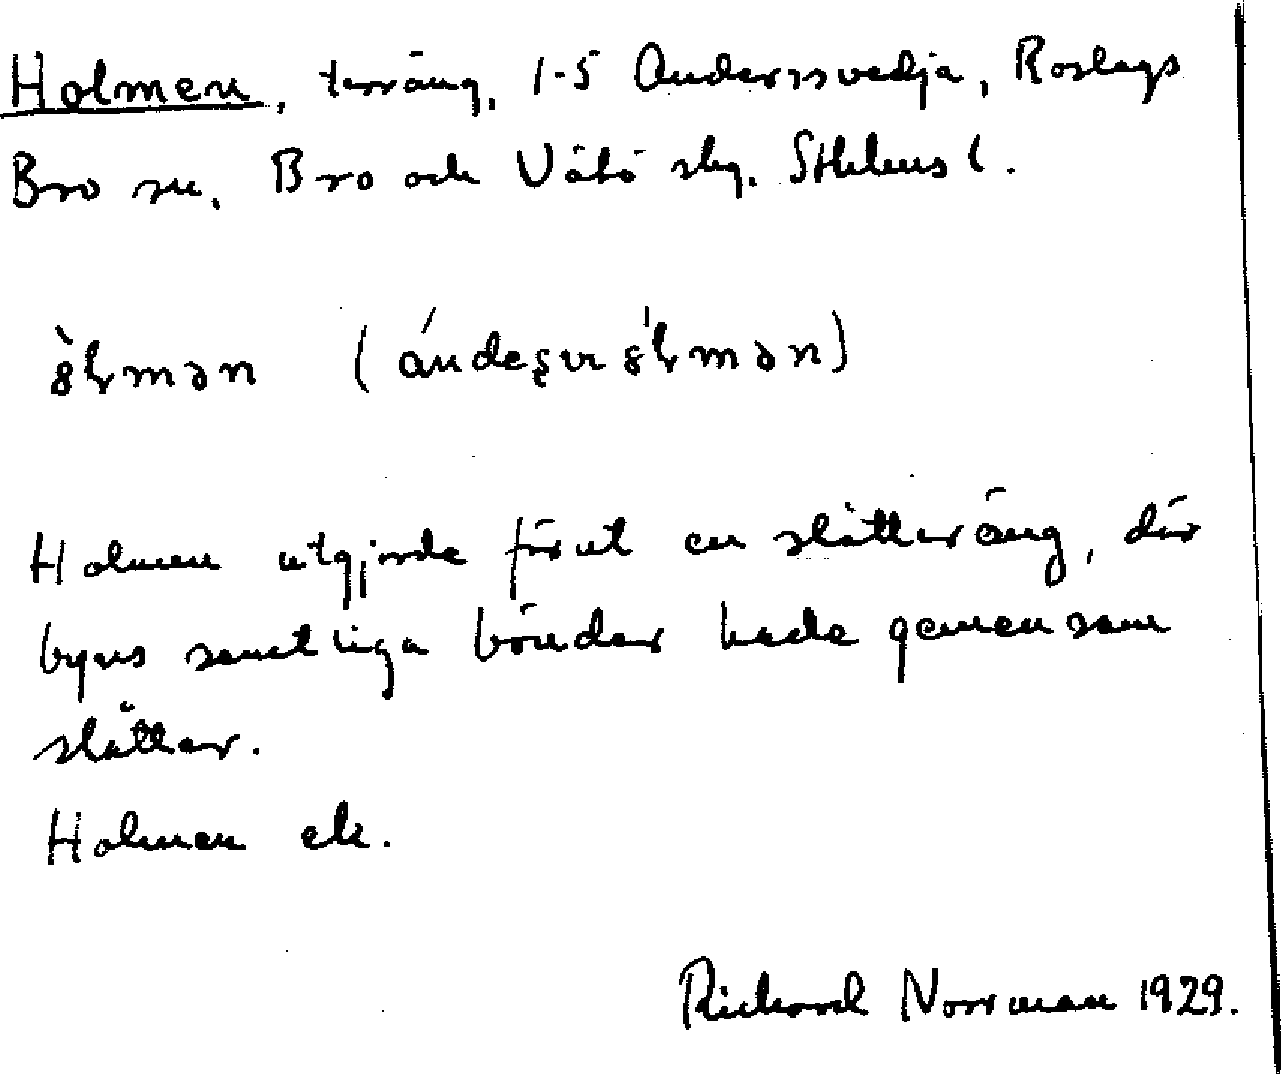 Holmen, terräng, 1-5 Anderssvedja, Roslags
Bro sn, Bro och Vätö skg. Sthlms l.
Holmen utgjorde förut en slätteräng, där
byns samtliga bönder hade gemensam
slåtter.
Holmen ek.
Richard Norrman 1929.